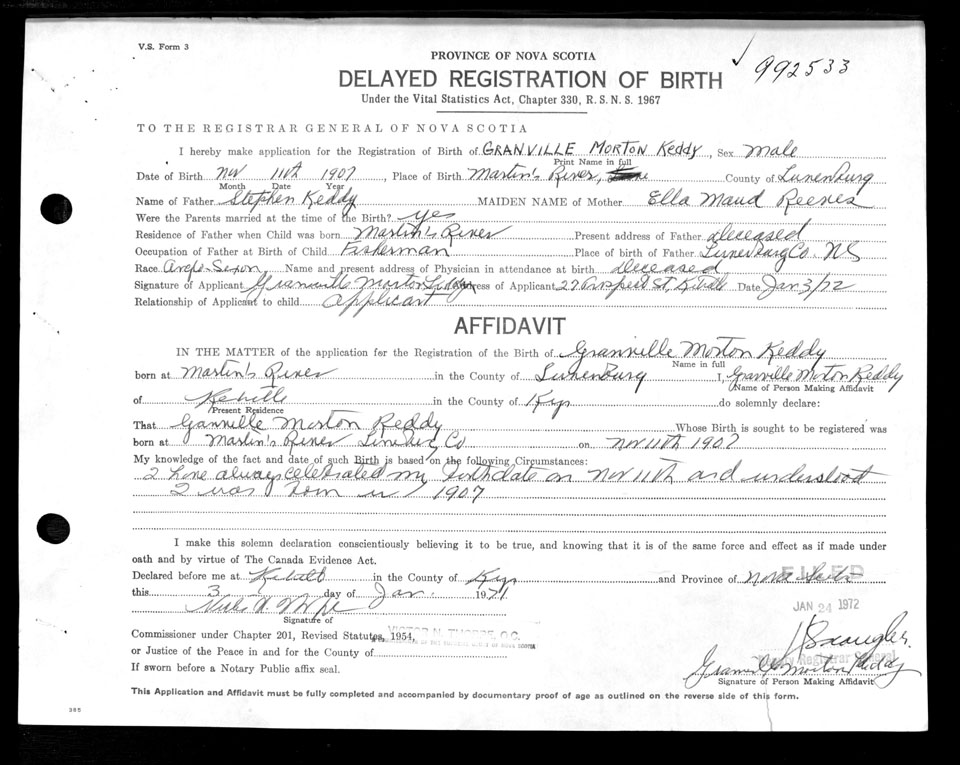 V.S. Form 3
992533
PROVINCE OF NOVA SCOTIA
DELAYED REGISTRATION OF BIRTH
Under the Vital Statistics Act, Chapter 330, R.S.N.S. 1967
TO THE REGISTRAR GENERAL OF NOVA SCOTIA
I hereby make application for the Registration of Birth of GRANVILLE MORTON Keddy, Sex Male
Print Name in full
Date of Birth Nov 11th 1907, Place of Birth Martin's River, County of Lunenburg
Month Date Year
Name of Father Stephen Keddy MAIDEN NAME of Mother Ella Maud Reeves
Were the Parents married at the time of the Birth? yes
Residence of Father when Child was born Martin's River Present address of Father deceased
Occupation of Father at Birth of Child Fisherman Place of birth of Father Lunenburg Co. NS
Race Anglo-Sexon, Name and present address of Physician in attendance at birth deceased
Signature of Applicant Granville Morton Keddy Address of Applicant 27 Prospect St, Date Jan 3/72
Relationship of Applicant to child applicant
AFFIDAVIT
IN THE MATTER of the application for the Registration of the Birth of Granville Morton Keddy
Name in full
born at Martin's River in the County of Lunenburg I, Granville Morton Keddy
Name of Person Making Affidavit
of in the County of do solemnly declare:
Present Residence
That Granville Morton Keddy Whose Birth is sought to be registered was
born at Martin's River Co on Nov 11th 1907
My knowledge of the fact and date of such Birth is based on the following Circumstances:
I have always celebrated my birthdate on Nov 11th and understood
I was born in 1907
I make this solemn declaration conscientiously believing it to be true, and knowing that it is of the same force and effect as if made under
oath and by virtue of The Canada Evidence Act.
Declared before me at in the County of and Province of Nova Scotia
FILED
this 3 day of Jan. 1971
JAN 24 1972
Signature of
VICTOR N. THORPE, Q.C.
Commissioner under Chapter 201, Revised Statutes, 1954,
or Justice of the Peace in and for the County of
Deputy Registrar General
If sworn before a Notary Public affix seal.
Granville Morton Keddy
Signature of Person Making Affidavit
This Application and Affidavit must be fully completed and accompanied by documentary proof of age as outlined on the reverse side of this form.
385